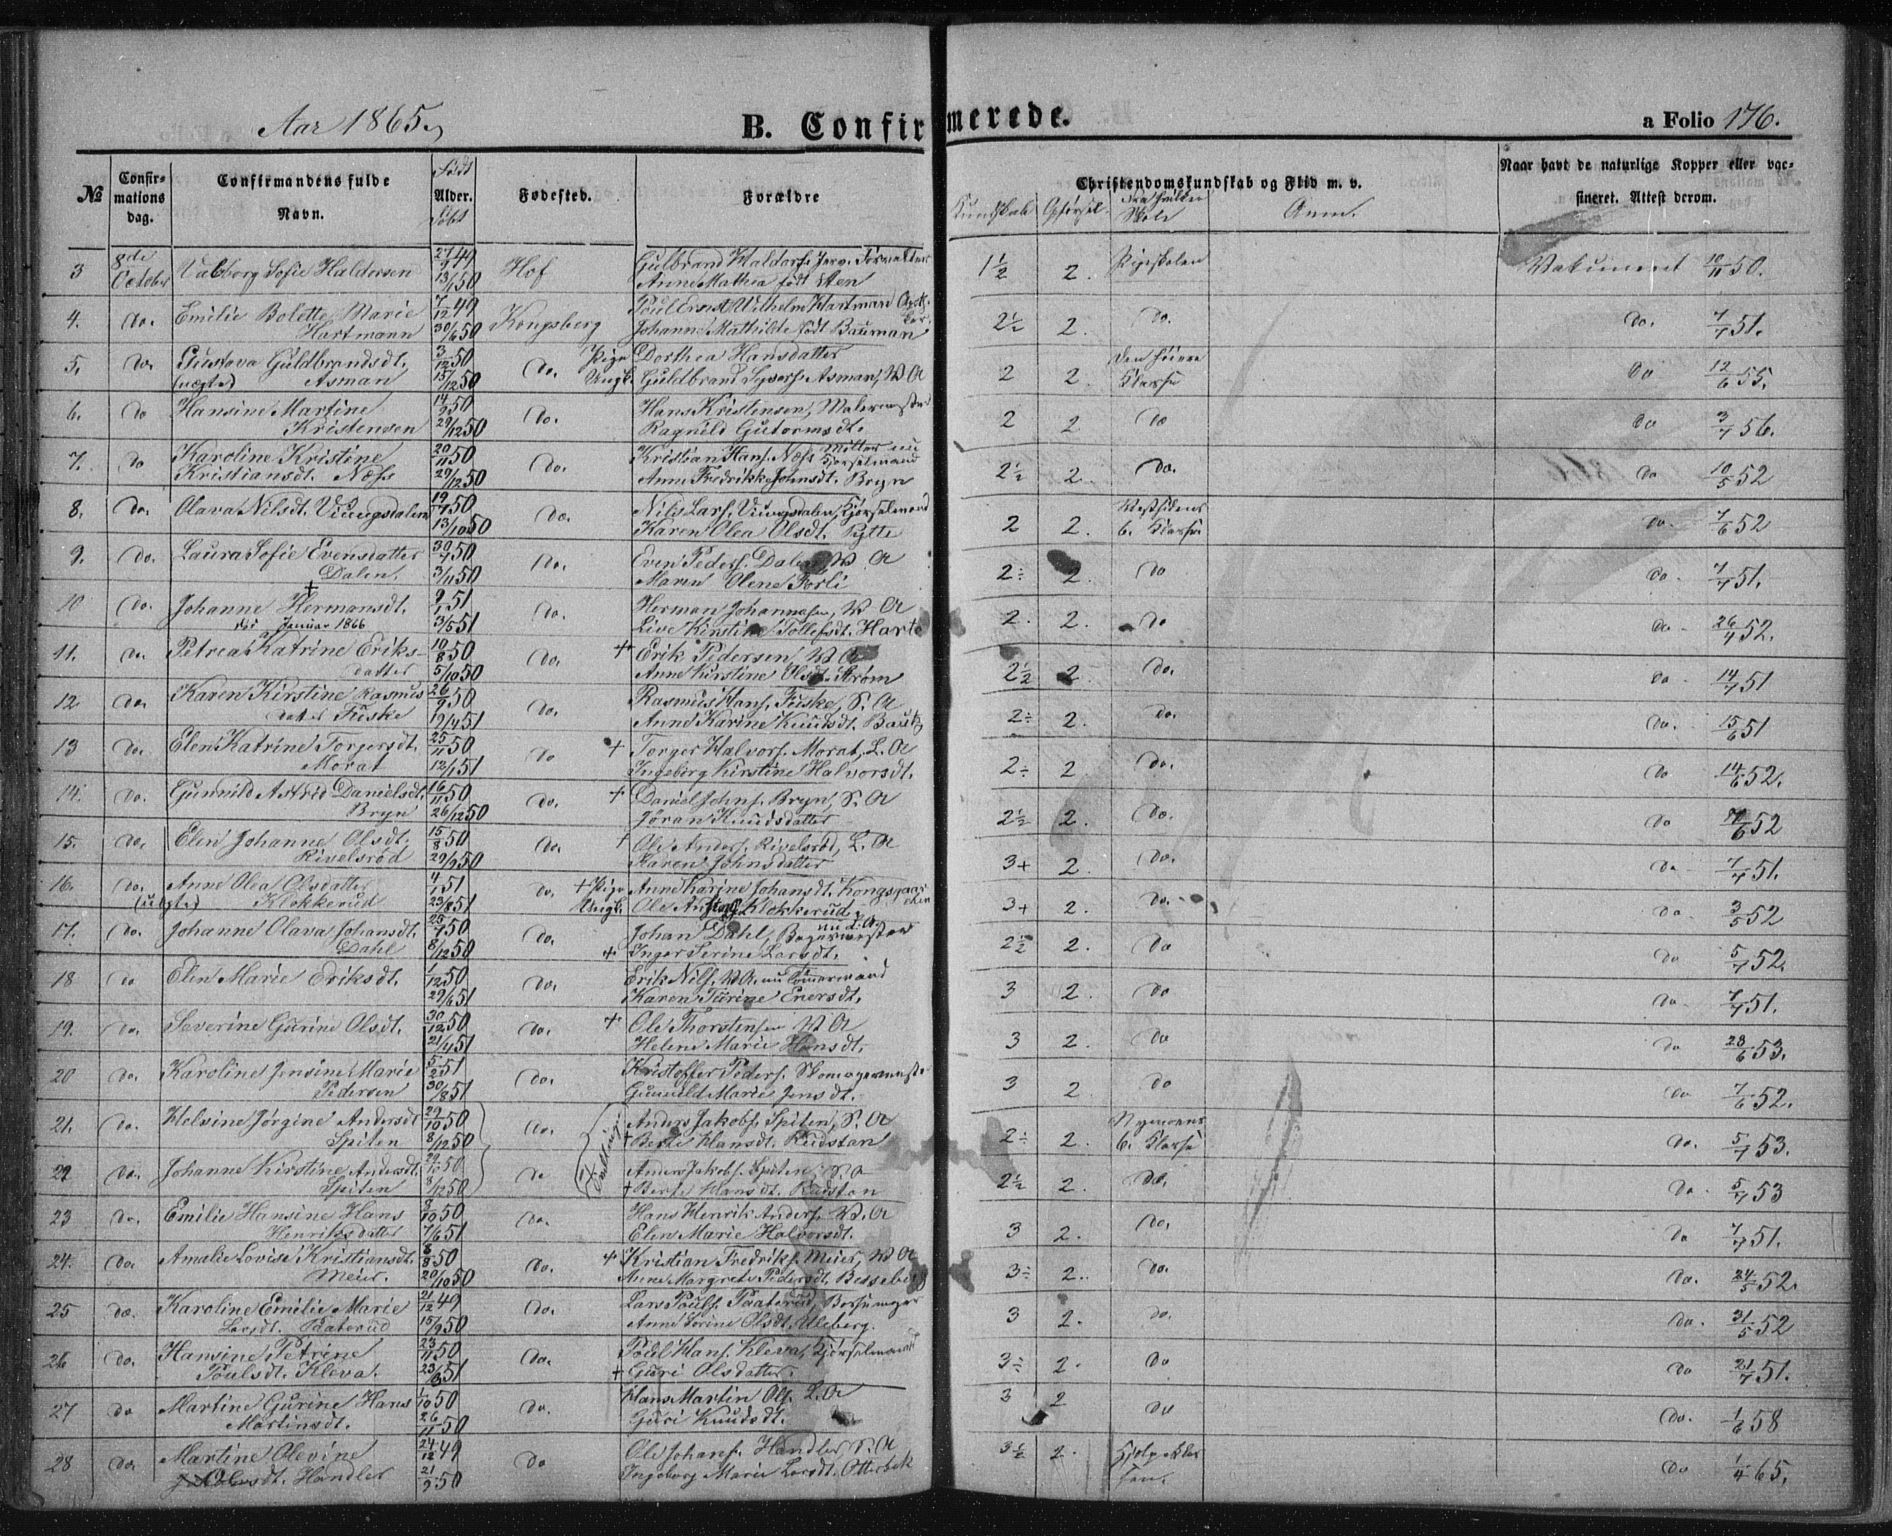 Aar 1865.
B. Confirmerede.
a Folio 176.
№
Confirmations dag.
Confirmandens fulde Navn.
Født Alder. Døbt
Fødested.
Forældre
Christendomskundskab og Flid m. v.
Kundskab
Opførsel.
Fra hvilken Skole
Anm.
Naar havt de naturlige Kopper eller vaccineret. Attest derom.
3 8de October Valborg Sofie Haldorsen 27/9 49 13/1 50 Hof Gulbrand Haldors.
Anne Mathea født Sten 1½ 2. Pigeskolen Vakcineret 10/11 50.
4. do. Emilie Bolette Marie Hartmann 7/12 49 30/6 50 Kongsberg Poul Ernst Wilhelm Hartman
Johanne Mathilde født Bauman 2½ 2. do. do. 7/7 51.
5. do Gustava Guldbrandsdt. Asman (uægte) 3/12 50 15/12 50 do. Pige Dorthea Hansdatter
Ungk. Guldbrand Syvers. Asman, W A 2 2. den høiere Klasse do 12/6 55.
6. do Hansine Martine Kristensen 14/9 50 29/12 50 do. Hans Kristensen, Malermester
Ragnild Gutormsdt. 2 2 do do 3/7 56.
7. do Karoline Kristine Kristiansdt. Næss 20/11 50 29/12 50 do. Kristian Hans. Næss Kjørselmand
Anne Fredrikke Johnsdt. Bryn 2½ 2. do. do 10/5 52
8. do. Olava Nilsdt. Viungsdalen 19/7 50 13/10 50 do. Nils Lars. Viungsdalen, Kjørselmand
Karen Olea Olsdt. Pytte 2 2. Vestsidens 6. Klasse do. 7/6 52
9. do. Laura Sofie Evensdatter Dalen. 30/7 50 3/11 50 do. Even Peders. Dalen, W A
Maren Olene Forli 2÷ 2. do do. 7/7 51.
10 do. Johanne Hermansdt. + Januar 1866 9/1 51 3/5 51 do. Herman Johannesen, W A
Live Kirstine Tollefsdt. Harte 2. 2. do do. 26/4 52.
11. do. Petrea Katrine Eriksdatter 10/8 50 5/10 50 do. + Erik Pedersen, W A
Anne Kirstine Olsdt. Strøm 2½ 2 do. do. 14/7 51
12 do. Karen Kirstine Rasmusdatter Fiske 26/9 50 19/4 51 do. Rasmus Hans. Fiske, S. A
Anne Karine Knudsdt. Bautz 2÷ 2. do. do. 15/6 51
13 do. Elen Katrine Torgersdt. Morat 25/11 50 12/1 51 do + Torger Halvors. Morat, L. A
Ingeborg Kirstine Halvorsdt. 2÷ 2 do. do 14/6 52.
14. do. Gunnild Astrid Danielsdt. Bryn 16/11 50 26/12 50 do. + Daniel Johns. Bryn, S. A
Jøran Knudsdatter 2½ 2. do. do 7/6 52
15. do. Elen Johanne Olsdt. Rivelsrød 15/8 50 29/9 50 do. + Ole Anders. Rivelsrød, L. A
Karen Johnsdatter 3+ 2. do. do 7/7 51.
16. do. Anne Olea Olsdatter Klokkerud (uægte) 4/1 51 23/8 51 do. + Pige Anne Karine Johansdt.
Ungk. Ole Klokkerud 3+ 2. do. do. 3/5 52
17. do. Johanne Olava Johansdt. Dahl 25/7 50 8/12 50 do. Johan Dahl, Bagermester
+ Inger Serine Larsdt. 2½ 2. do do 5/7 52.
18 do Elen Marie Eriksdt. 1/12 50 29/6 51 do. Erik Nils. W A. nu Tømermand
Karen Turine Enersdt. 3 2. do do. 7/7 51.
19. do. Severine Gurine Olsdt. 30/12 50 21/4 51 do. + Ole Thorstensen W A
Helene Marie Hansdt. 3 2. do do 28/6 53.
20 do. Karoline Jensine Marie Pedersen 5/2 51 30/8 51 do. Kristoffer Peders. Skomagermester
Gunnild Marie Jensdt. 3 2. do do 7/6 52.
21. do. Helvine Jørgine Andersdt. Spiten 29/10 50 8/12 50 do. Tvillinge Anders Jakobs. Spiten, S. A
+ Berte Hansdt. Rudstan 2÷ 2. Nymoens 6. Klasse do. 5/7 53.
22 do. Johanne Kirstine Andersdt. Spiten 29/10 50 8/12 50 do Anders Jakobs. Spiten, S. A
+ Berte Hansdt. Rudstan 2½ 2. do. do. 5/7 53
23 do. Emilie Hansine Hans Henriksdatter 8/10 50 7/6 51 do. Hans Henrik Anders. W. A
Elen Marie Halvorsdt. 3 2. do. do 7/7 51.
24. do. Amalie Lovise Kristiansdt. Meier. 8/8 50 20/10 50 do. + Kristian Fredriks. Meier, W A
Anne Margrete Pedersdt. Besseberg 3÷ 2. do. do. 24/5 52.
25 do. Karoline Emilie Marie Larsdt. Paaterud 21/12 49 15/9 50 do. Lars Pouls. Paaterud, Bøssemager
Anne Sorine Olsdt. Uleberg. 3 2. do. do. 31/5 52
26 do. Hansine Petrine Poulsdt. Kleva. 23/11 50 23/3 51 do. Poul Hans. Kleva, Kjørselmand
+ Guri Olsdatter. 3÷ 2. do do 21/7 51.
27 do Martine Gurine Hans Martinsdt. 1/10 50 26/11 50 do. Hans Martin Ols. L. A
Guri Knudsdt. 3 2 do do. 1/6 58
28 do. Martine Olevine Olsdt. Handler 24/12 49 21/2 50 do Ole Johans. Handler S. A
Ingeborg Marie Larsdt. Otterbek 3½ 2. do 1/4 65.